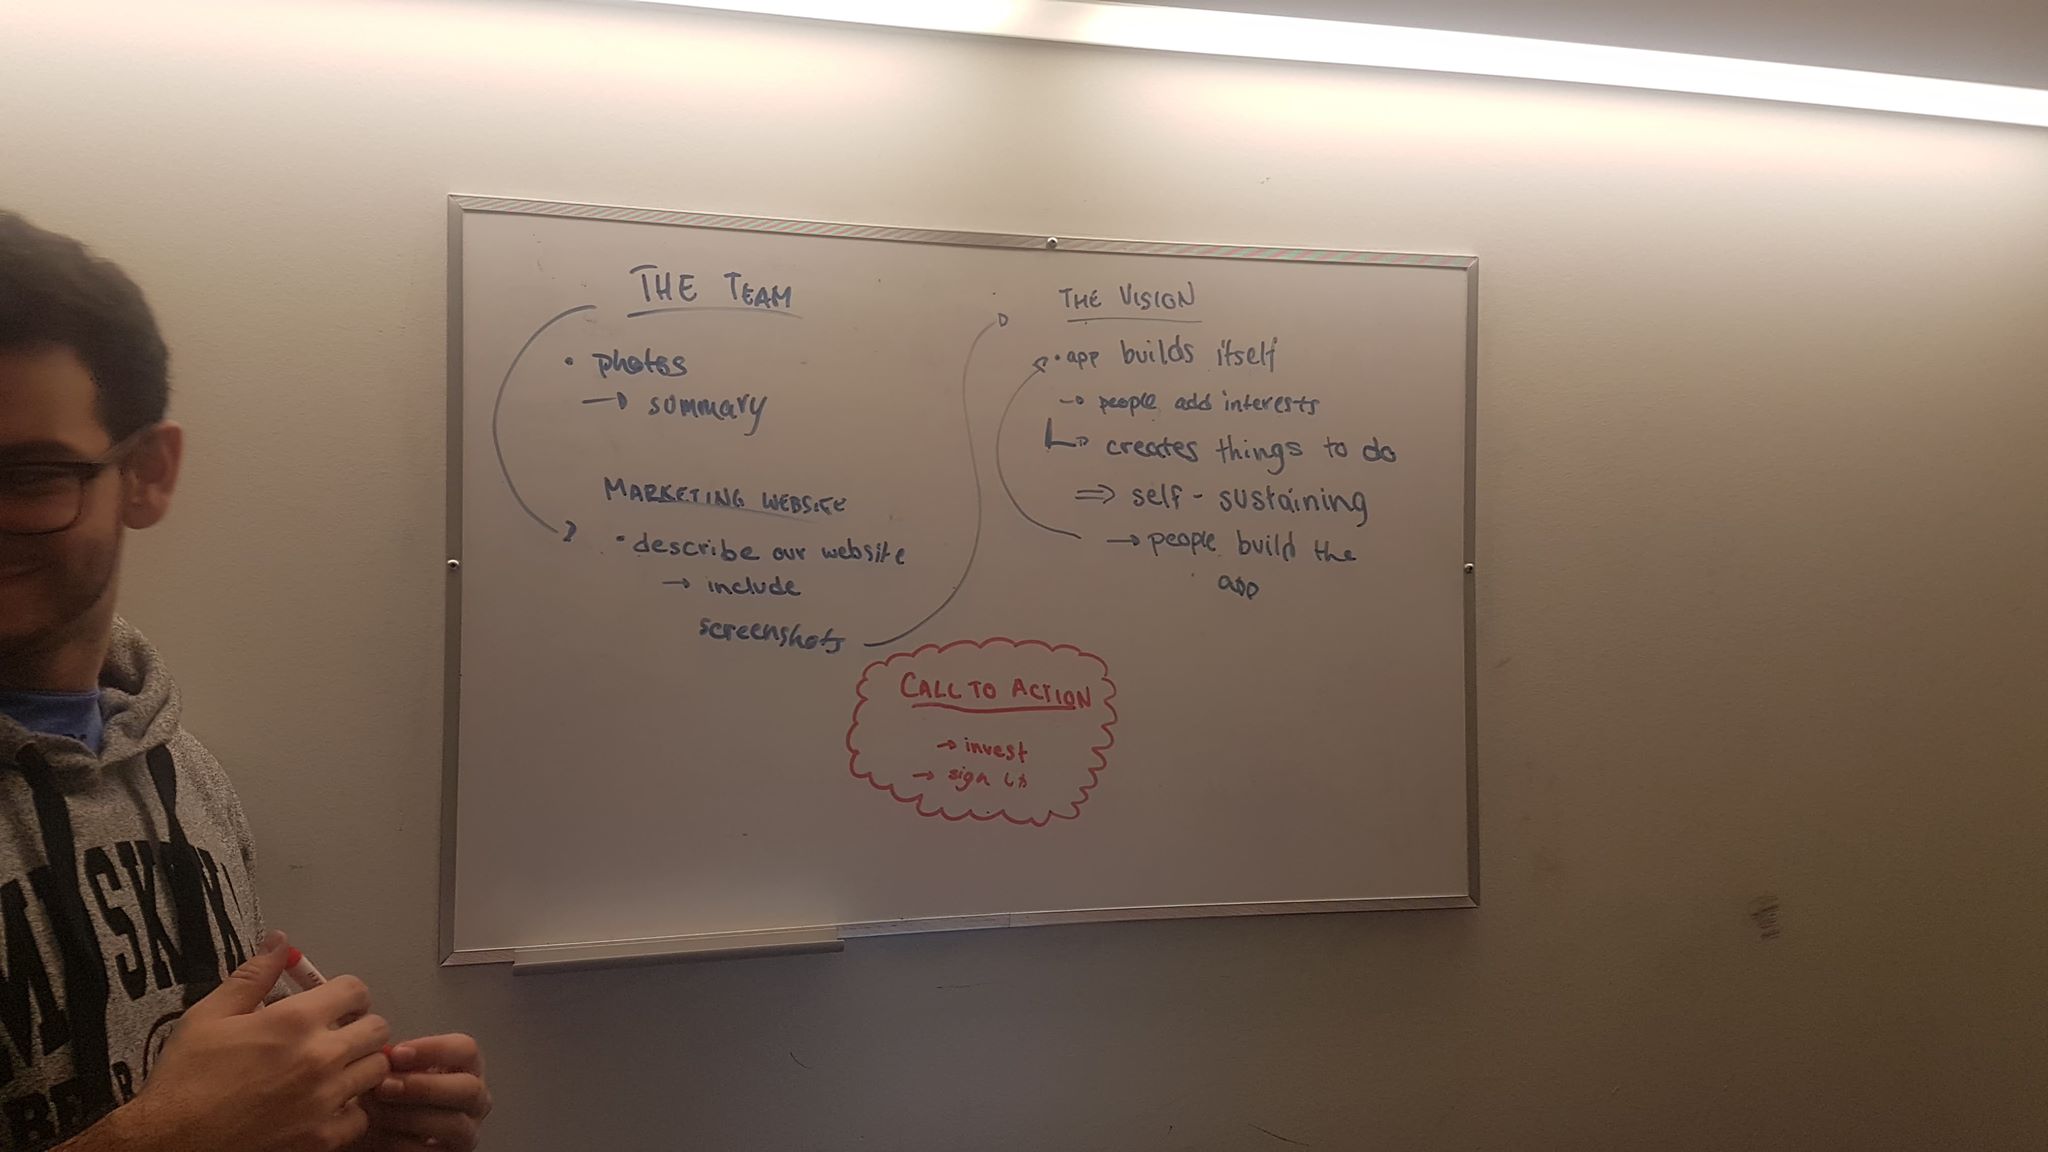 THE TEAM
• photos
→ summary
MARKETING WEBSITE
• describe our website
→ include
screenshots
THE VISION
• app builds itself
→ people add interests
↳ creates things to do
⇒ self-sustaining
→ people build the
app
CALL TO ACTION
→ invest
→ sign
BEAR